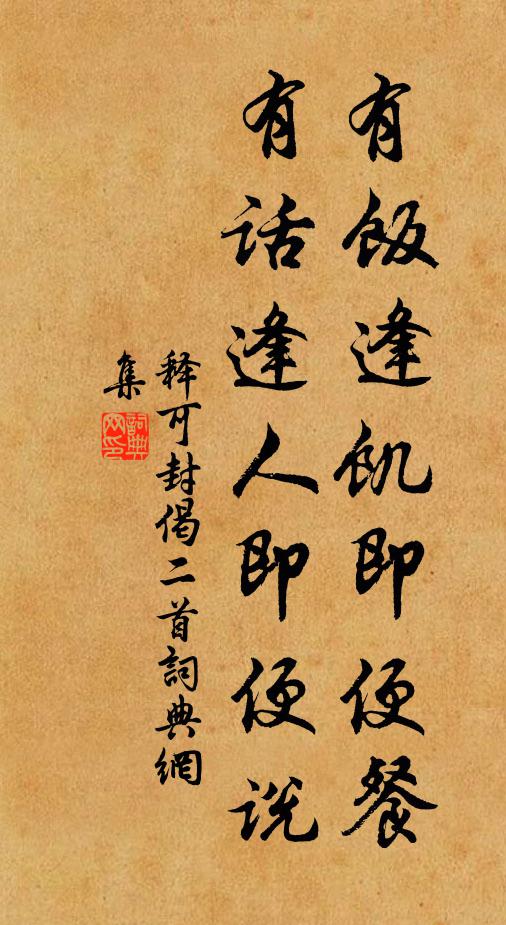 有飯逢飢即便餐
有话逢人即便说
释可封偈二首詞典網
集
詞典
网印